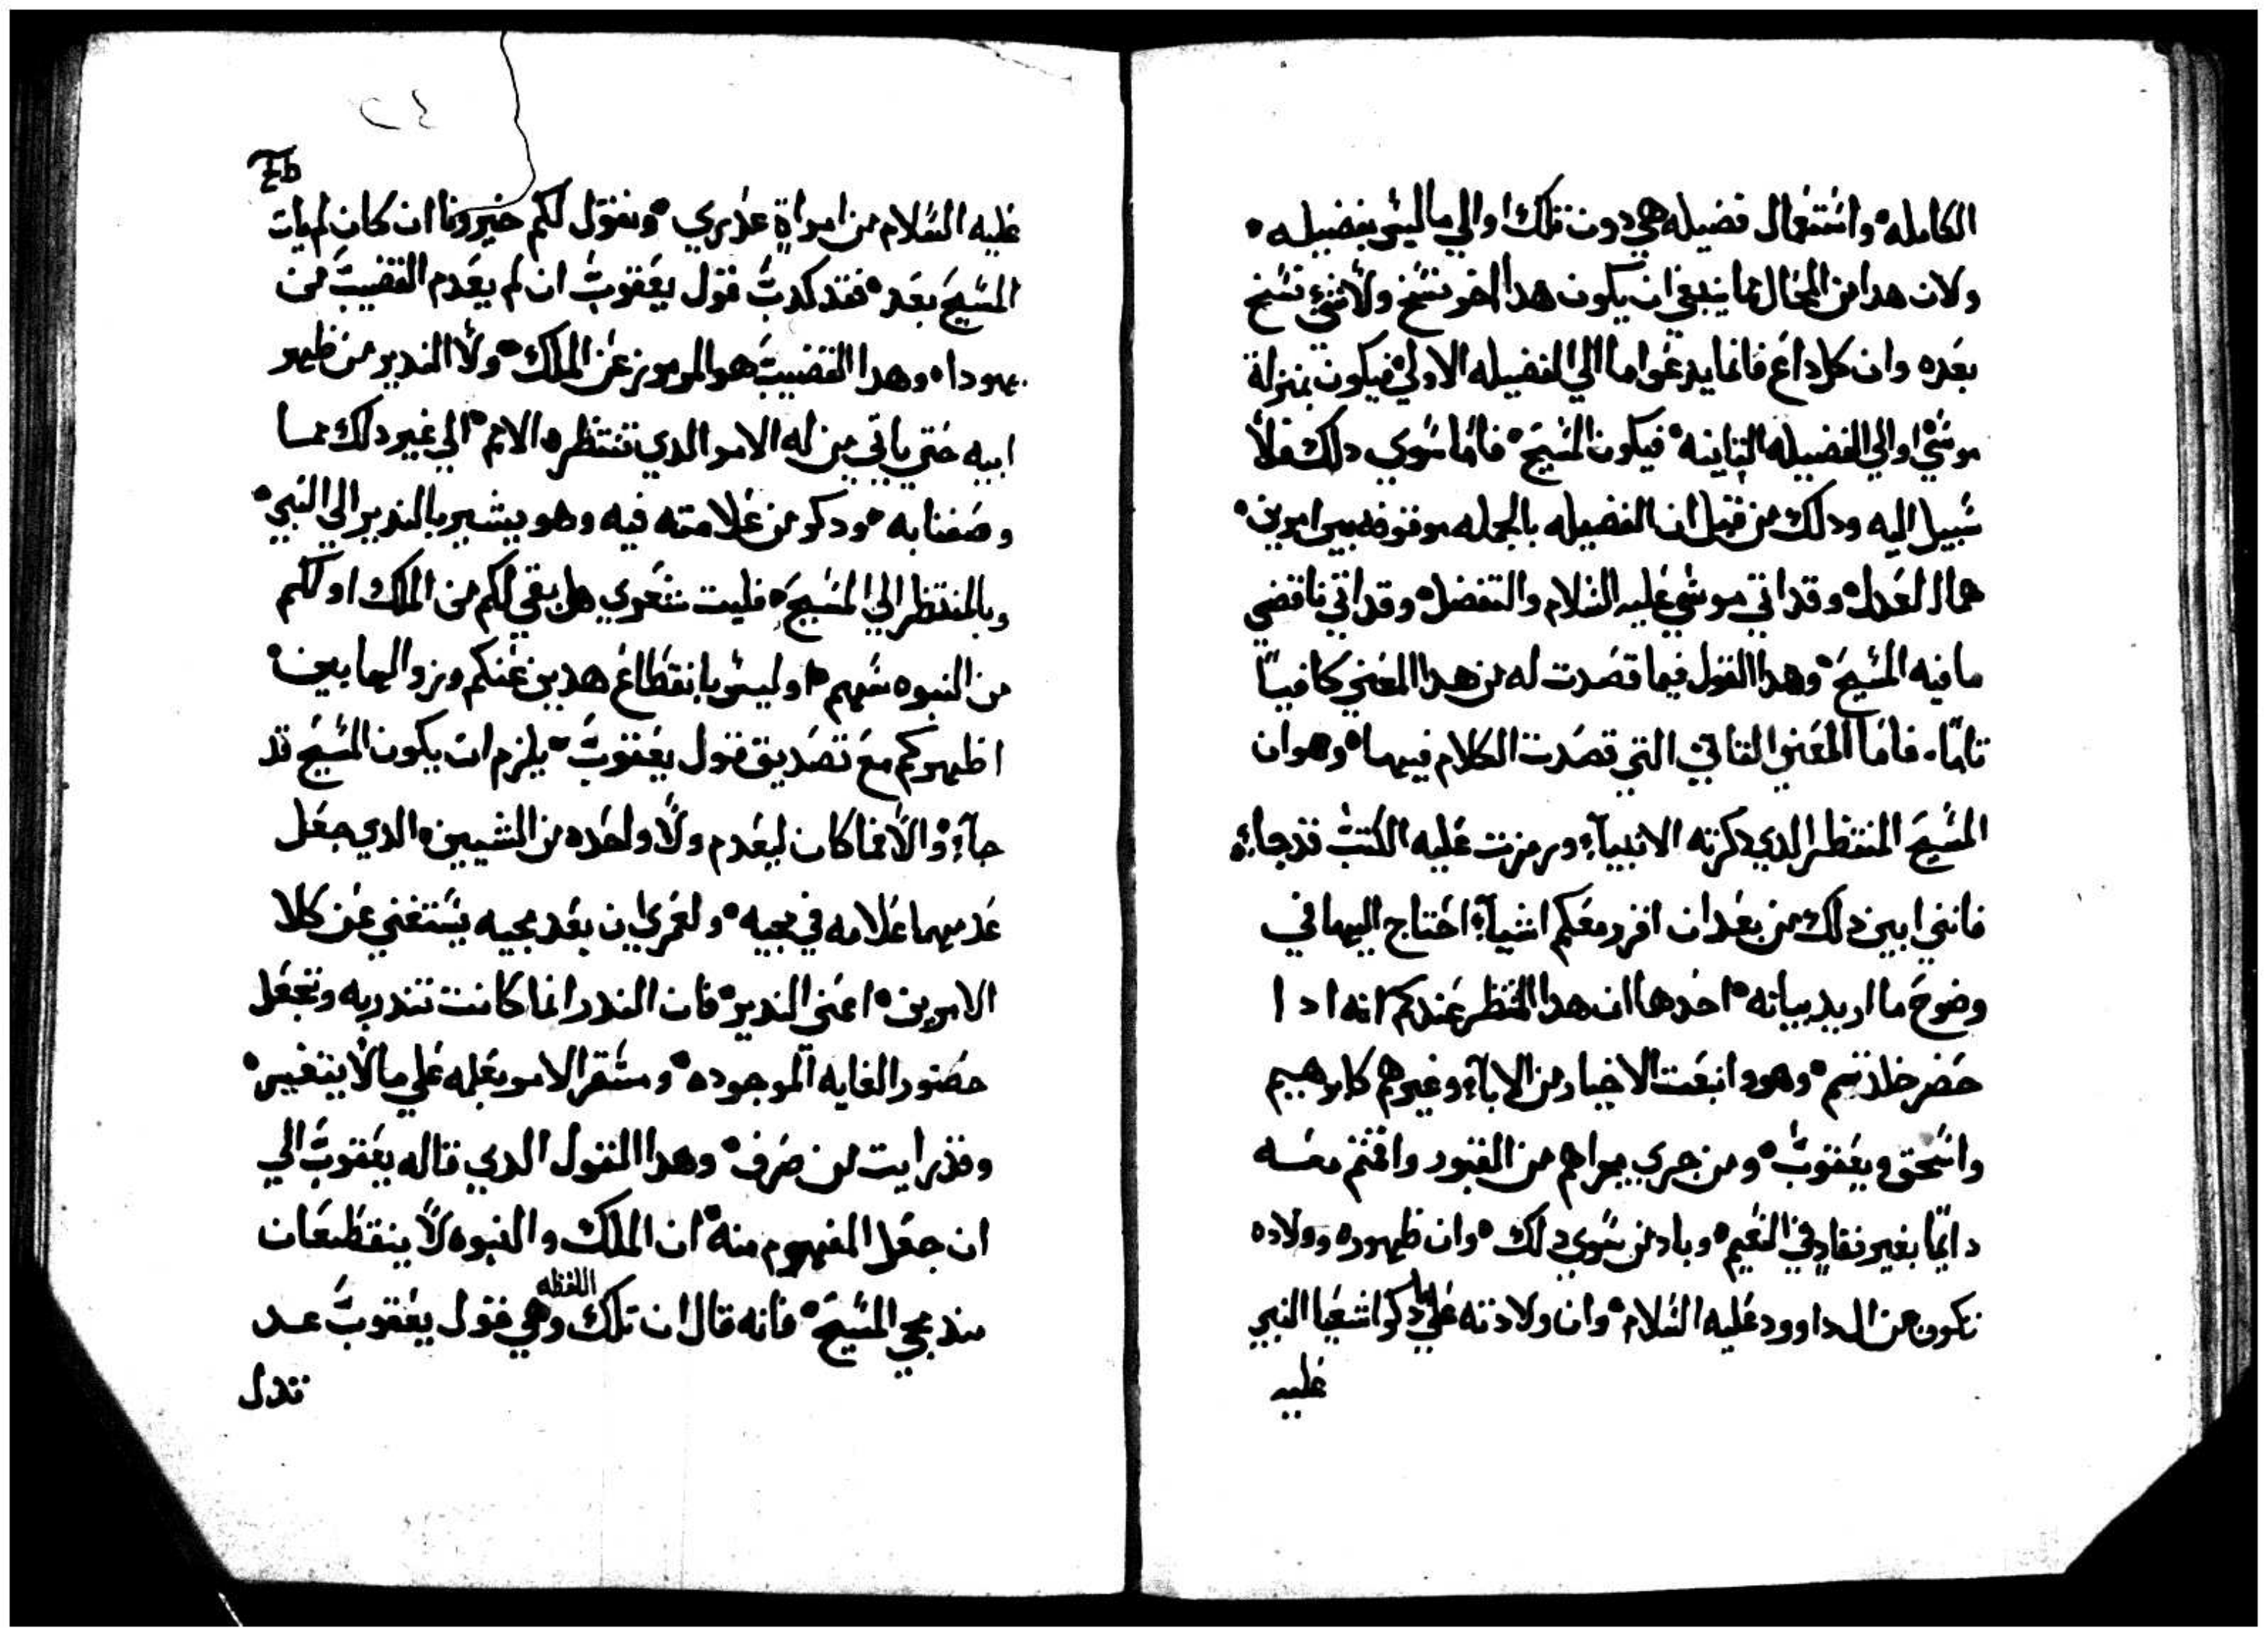 الكامله ۰ واستعمال فضيله هي دون تلك اوالي ما ليس بفضيله ۰
ولان هدا من المحال فما ينبغي ان يكون هدا اخر نسخ ولا شي نسخ
بعده وان كل داع فانما يدعوا اما الي الفضيله الاولي فيكون بمنزلة
موسي اوالي الفضيله التانيه ۰ فيكون المسيح ۰ فاما سوي دلك فلا
سبيل اليه ودلك من قبل ان الفضيله بالجمله موقوفه بين امرين ۰
هما العدل ۰ وقد اتي موسي عليه السلام والتفضل ۰ وقد اتي ناقضي
ما فيه المسيح ۰ وهدا القول فيما قصدت له من هدا المعني كافيا
تاما ۰ فاما المعني التاني التي قصدت الكلام فيها ۰ وهوان
المسيح المنتظر الدي دكرته الانبيآء ورمزت عليه الكتب قد جاء ۰
فانني ابين دلك من بعد ان افرد معكم اشيآء احتاج اليها في
وضوح ما اريد بيانه ۰ احدها ان هدا المنتظر عندكم انه ادا
حضر خلدتم ۰ وهودا انبعت الاخيار من الابآء وغيرهم كابرهيم
واسحق ويعقوب ۰ ومن جري مجراهم من القبور واقتم معه
دايما بغير نفاد في النعيم ۰ وباد من سوي دلك ۰ وان ظهوره وولاده
تكون من ال داوود عليه السلام ۰ وان ولادته علي ما دكر اشعيا النبي
عليه
7b
عليه السلام من امراة عذري ۰ ونقول لكم خيرونا ان كان لم يات
المسيح بعد ۰ فقد كدبت قول يعقوب ان لم يعدم القضيب من
يهودا ۰ وهدا القضيب هو المرموز عن الملك ۰ ولا الندير من ظهر
ابيه حتي ياتي من له الامر الدي تنتظره الامم ۰ الي غير دلك مما
وصفنا به ۰ ودكر من علامته فيه وهو يشير بالندير الي النبي ۰
وبالمنتظر الي المسيح ۰ فليت شعري هل بقي لكم من الملك او لكم
من النبوه سهم ۰ او ليس بانقطاع هدين عنكم وزوالهما بين ۰
اظهركم مع تصديق قول يعقوب ۰ يلزم ان يكون المسيح قد
جآء ۰ والا فما كان ليعدم ولا واحده من الشيين ۰ الدي جعل
عدمهما علامه في مجيه ۰ ولعمري ان بعد مجيه يستغني عن كلا
الامرين ۰ اعني الندير ۰ فان الندر انما كانت تندر به وتجعل
حضور الغايه الموجوده ۰ ومستقر الامر بعله علي ما لا يتغير ۰
وقد رايت من صرف ۰ وهدا القول الدي قاله يعقوب الي
ان جعل المفهوم منه ۰ ان الملك والنبوه لا ينقطعان
مند مجي المسيح ۰ فانه قال ان تلك اللفظه وهي قول يعقوب عد
تدل